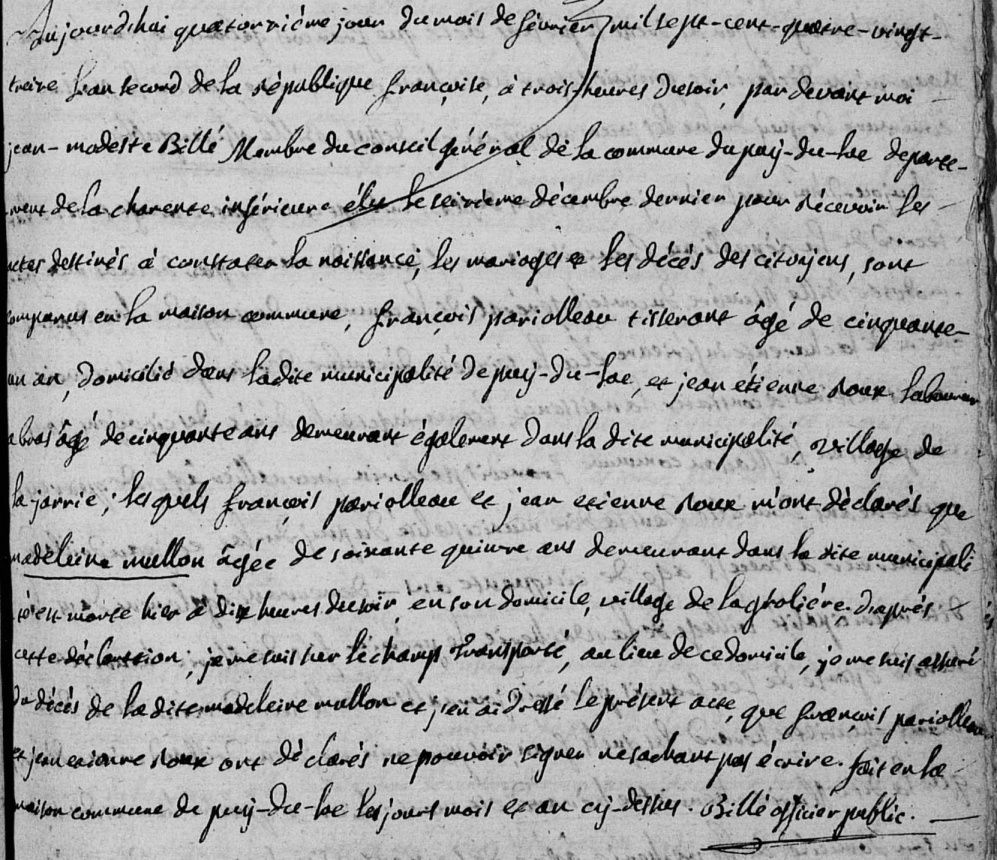 Aujourdhui quatorzième jour du mois de février mil sept-cent-quatre-vingt-
treize l'an second de la république françoise, à trois heures du soir, par devant moi
jean-modeste Billé Membre du conseil général de la commune du puy-du-lac departe-
ment de la charente inférieure élu le seizieme décembre dernier pour récévoir les
actes destinés à constater la naissance, les mariages et les décès des citoyens, sont
comparus en la maison commune, françois pariolleau tisserant âgé de cinquante-
un an, domicilié dans la dite municipalité de puy-du-lac, et jean étienne roux laboureur
a bras âgé de cinquante ans demeurant également dans la dite municipalité, village de
la jarrie; les quels françois pariolleau et jean etienne roux m'ont déclarés que
madeleine mullon âgée de soixante quinze ans demeurant dans la dite municipali
té est morte hier à dix heures du soir, en son domicile, village de la grolière. d'après
cette déclaration, je me suis sur le champ transporté, au lieu de ce domicile, je me suis assuré
du décés de la dite madeleine mullon et j'en ai dressé le présent acte, que françois pariolleau
et jean etienne roux ont déclarés ne pouvoir signer ne sachant pas écrire. fait en la
maison commune de puy-du-lac les jours mois et an cy-dessus. Billé officier public.